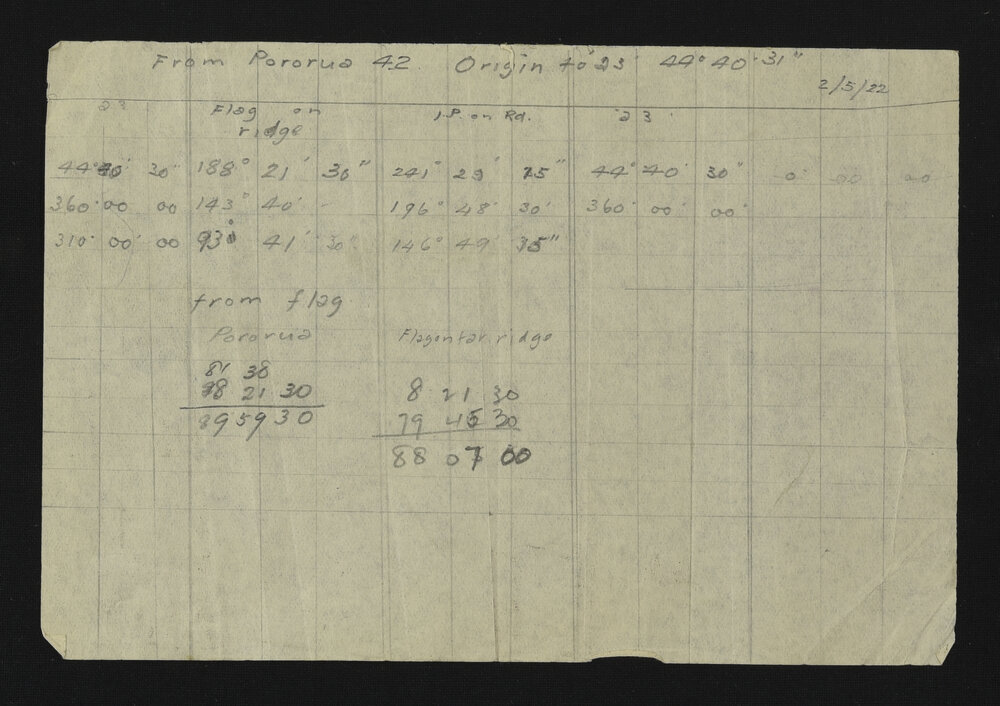 From Pororua 42. Origin to 23 44° 40' 31"
2/5/22
23 Flag on ridge I.P. on Rd. 23
44° 40' 30" 188° 21' 30" 241° 29' 15" 44° 40' 30" 0° 00 00
360° 00 00 143° 40' - 196° 48' 30' 360° 00' 00"
310° 00' 00 93° 41' 30" 146° 49' 35"
from flag
Pororua Flag on far ridge
81 38
98 21 30 8 21 30
89 59 30 79 45 30
88 07 00